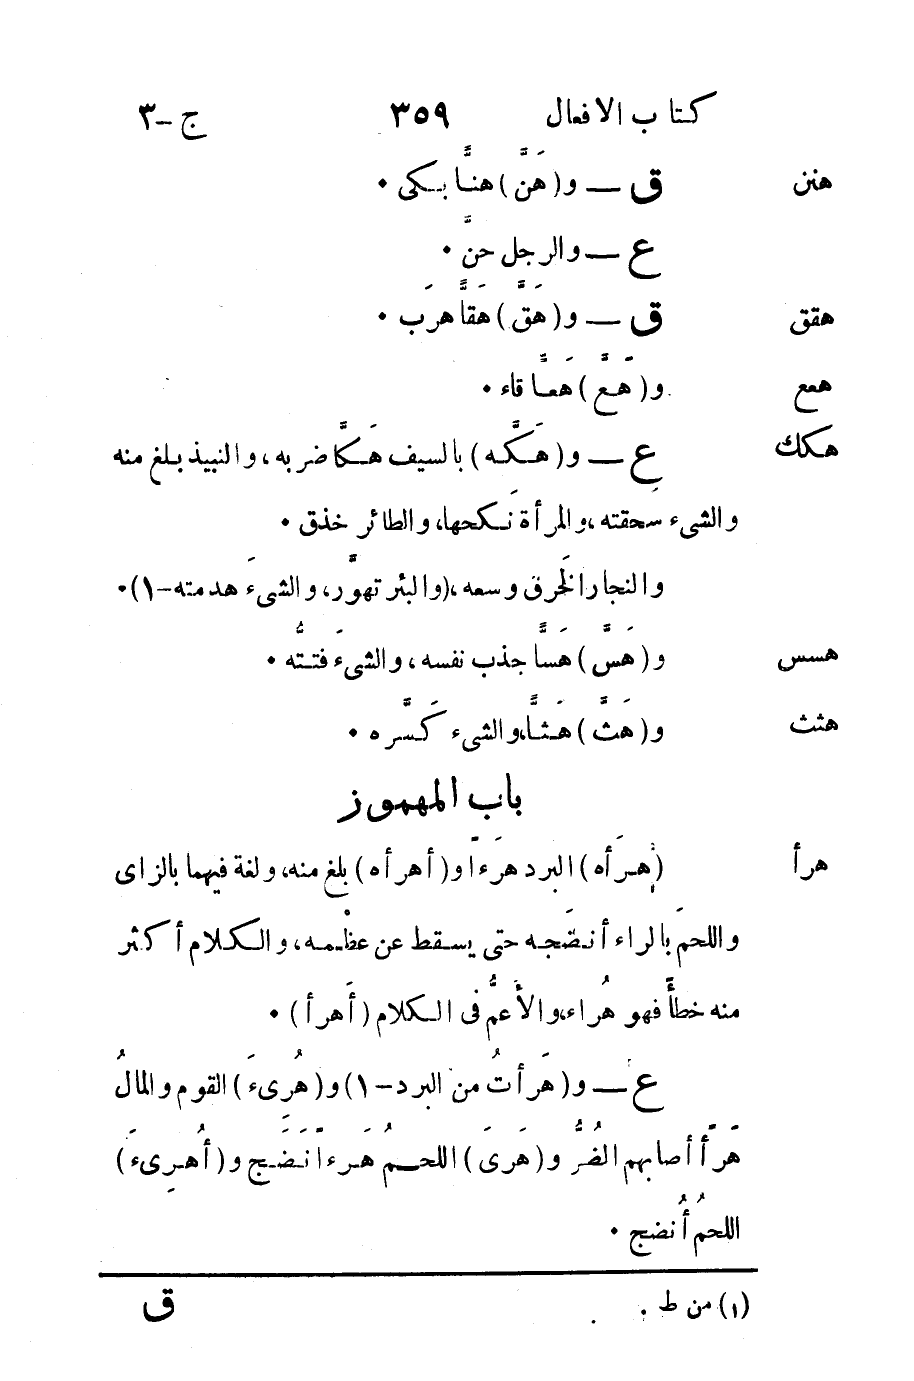 كتاب الافعال ٣٥٩ ج-٣
هنن ق — و(هَنَّ) هنّـًا بكى •
ع — والرجل حنَّ •
هقق ق — و(هَقَّ) هَقًّا هرَب •
همع و(هَعَّ) هَعًّا قاء •
هكك ع — و(هَكَّه) بالسيف هَكًّا ضربه، والنبيذ بلغ منه
والشىء سحقته، والمرأة نَكحها، والطائر خذق •
والنجار الخَرق وسعه، (والبئر تهوَّر، والشىءَ هدمته-١) •
هسس و(هَسَّ) هَسًّا جذب نفسه، والشىءَ فتتُّه •
هثث و(هَثَّ) هَثًّا، والشىء كَسَّره •
باب المهموز
هرأ (هرَأه) البرد هَرَءًا و(أهرأه) بلغ منه، ولغة فيهما بالزاى
واللحمَ بالراء أنضَجه حتى يسقط عن عظْمه، والكلام أكثر
منه خطأً فهو هُراء، والأعمُّ فى الكلام (أَهرأ) •
ع — و(هَرأتُ من البرد-١) و(هُرىءَ) القوم والمالُ
هَرْأً أصابهم القُرُّ و(هَرَىَ) اللحمُ هَرءًا نَضَج و(أُهرِىءَ)
اللحمُ أُنضج •
(١) من ط .
ق